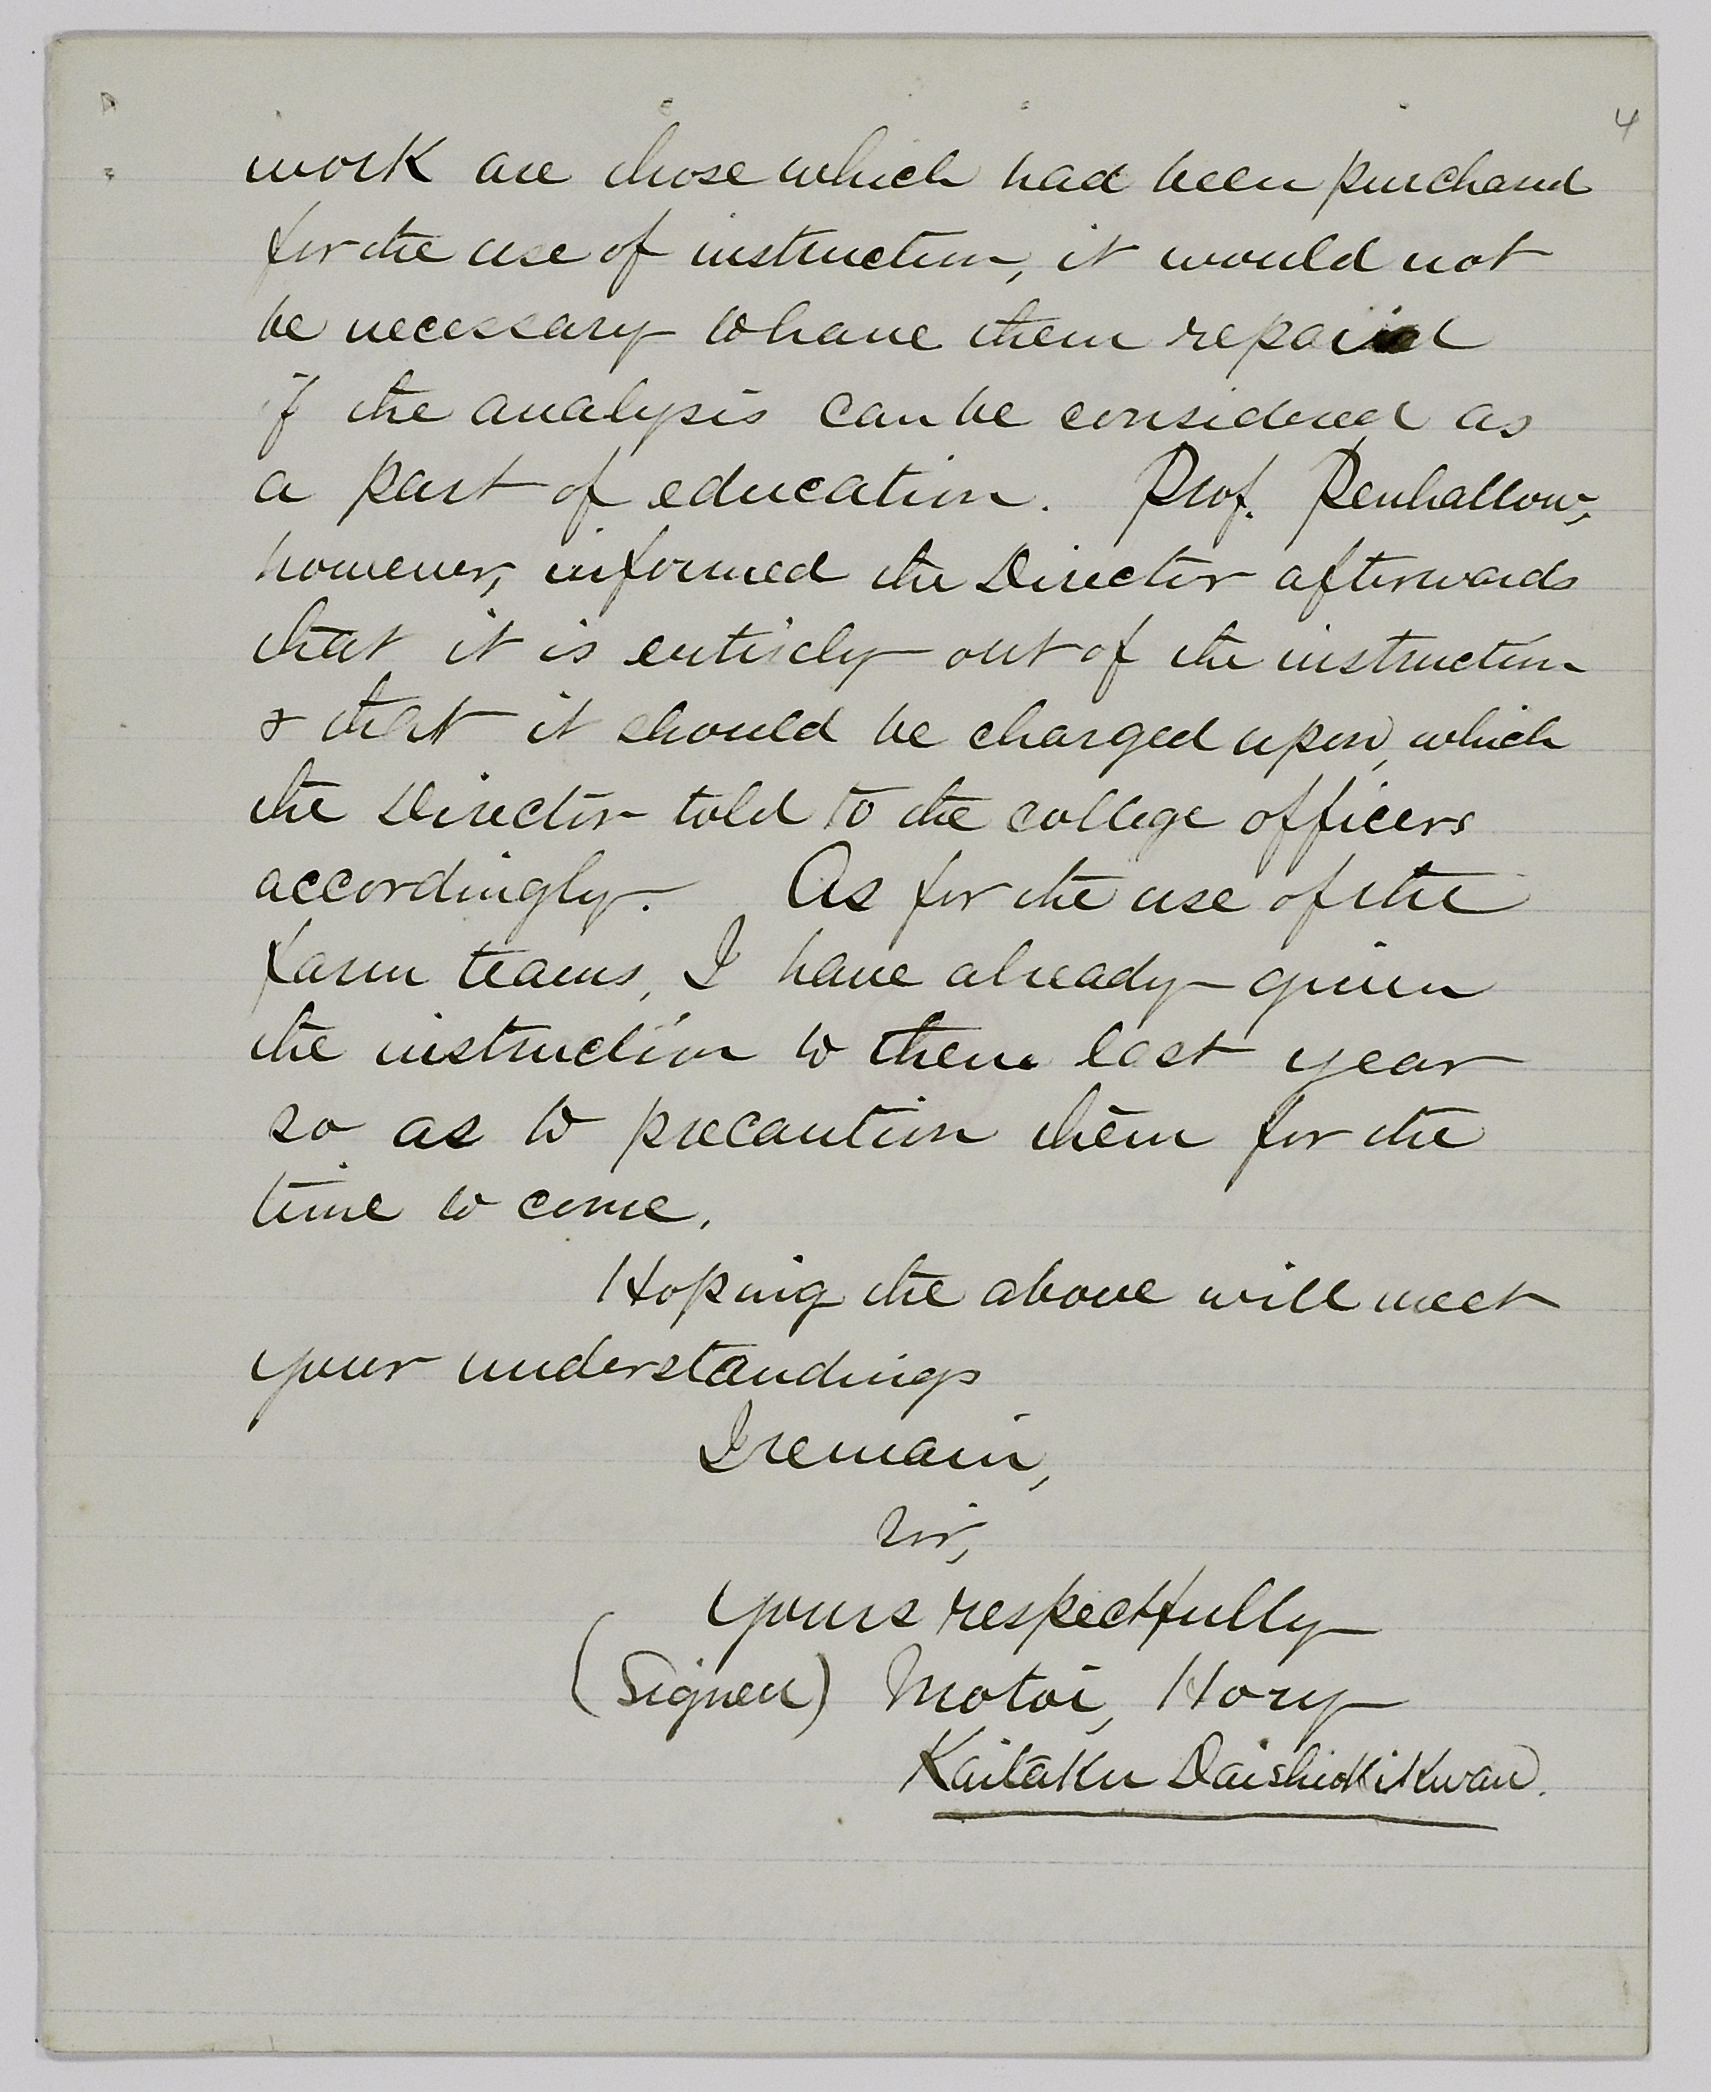 4
work are those which had been purchased
for the use of instruction, it would not
be necessary to have them repaid
if the analysis can be considered as
a part of education. Prof. Penhallow,
however, informed the Director afterwards
that it is entirely out of the instruction
& that it should be charged upon, which
the Director told to the college officers
accordingly. As for the use of the
farm teams, I have already given
the instruction to them last year
so as to precaution them for the
time to come.
Hoping the above will meet
your understandings
I remain,
Sir,
Yours respectfully
(Signed) Motoi, Hory
Kaitaku Daishiokikwan.